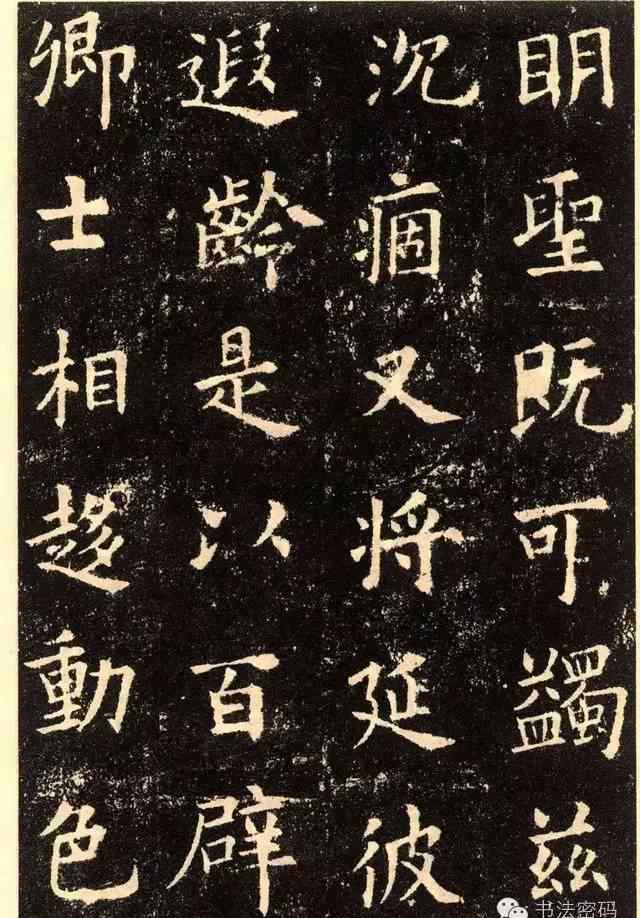 眀聖既可蠲兹
沉痼又将延彼
遐齡是以百辟
卿士相趍動色
书法密码